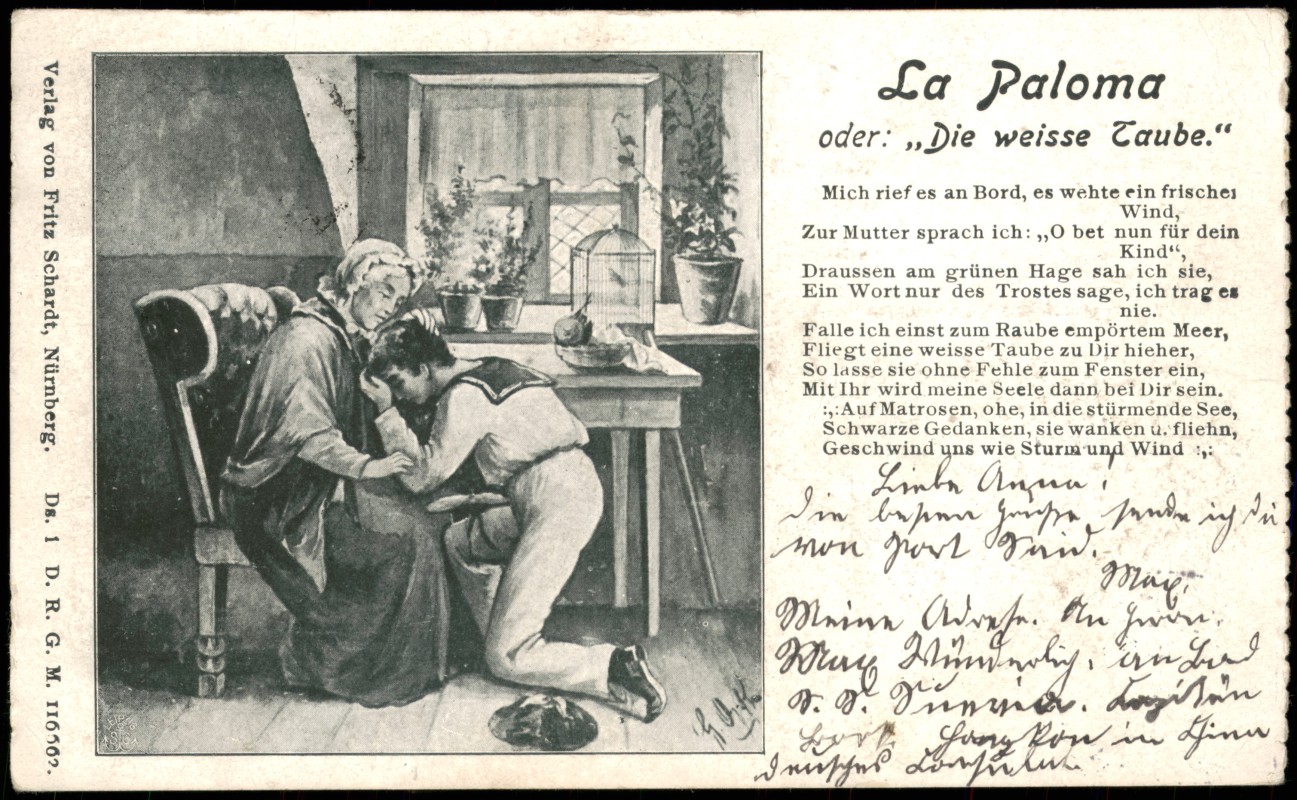 Verlag von Fritz Schardt, Nürnberg. Ds. 1 D. R. G. M. 116662.
La Paloma
oder: „Die weisse Taube.“
Mich rief es an Bord, es wehte ein frischer
Wind,
Zur Mutter sprach ich: „O bet nun für dein
Kind“,
Draussen am grünen Hage sah ich sie,
Ein Wort nur des Trostes sage, ich trag es
nie.
Falle ich einst zum Raube empörtem Meer,
Fliegt eine weisse Taube zu Dir hieher,
So lasse sie ohne Fehle zum Fenster ein,
Mit Ihr wird meine Seele dann bei Dir sein.
:,: Auf Matrosen, ohe, in die stürmende See,
Schwarze Gedanken, sie wanken u. fliehn,
Geschwind uns wie Sturm und Wind :,:
Liebe Anna!
die besten Grüße sende ich dir
von Port Said.
Max,
Meine Adreße. An Herrn.
Max Wünderlich, an Bord
S. S. Suevia. Kapitän
Hong Kon in China
deutsches Konsulat.